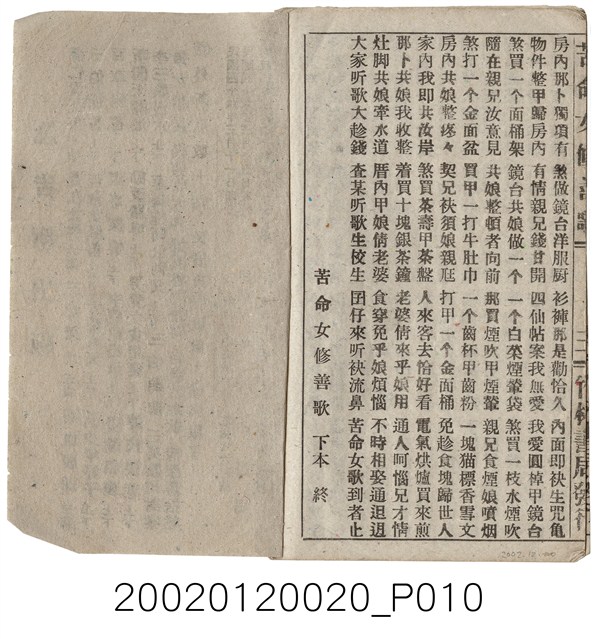 苦命女修善歌
竹林書局發行
房內那卜獨項有 煞做鏡台洋服厨 衫褲那是勸恰久 內面即袂生咒龜
物件整甲歸房內 有情親兄錢甘開 四仙帖案我無愛 我愛圓棹甲鏡台
煞買一个面桶架 鏡台共娘做一个 一个白菜煙葷袋 煞買一枝水煙吹
隨在親兄汝意見 共娘整頓者向前 那買煙吹甲煙葷 親兄食煙娘噴烟
煞打一个金面盆 買甲一打牛肚巾 一个齒杯甲齒粉 一塊猫標香雪文
房內共娘整疼々 契兄袂須娘親尪 打甲一个金面桶 免趁食塊歸世人
家內我即共汝岸 煞買茶壽甲茶盤 人來客去恰好看 電氣烘爐買來煎
那卜共娘我收整 着買十塊銀茶鐘 老婆倩來乎娘用 通人呵惱兄才情
灶脚共娘牽水道 厝內甲娘倩老婆 食穿免乎娘煩惱 不時相娶通𨑨迌
大家听歌大趁錢 查某听歌生校生 囝仔來听袂流鼻 苦命女歌到者止
苦命女修善歌 下本 終
20020120020_P010